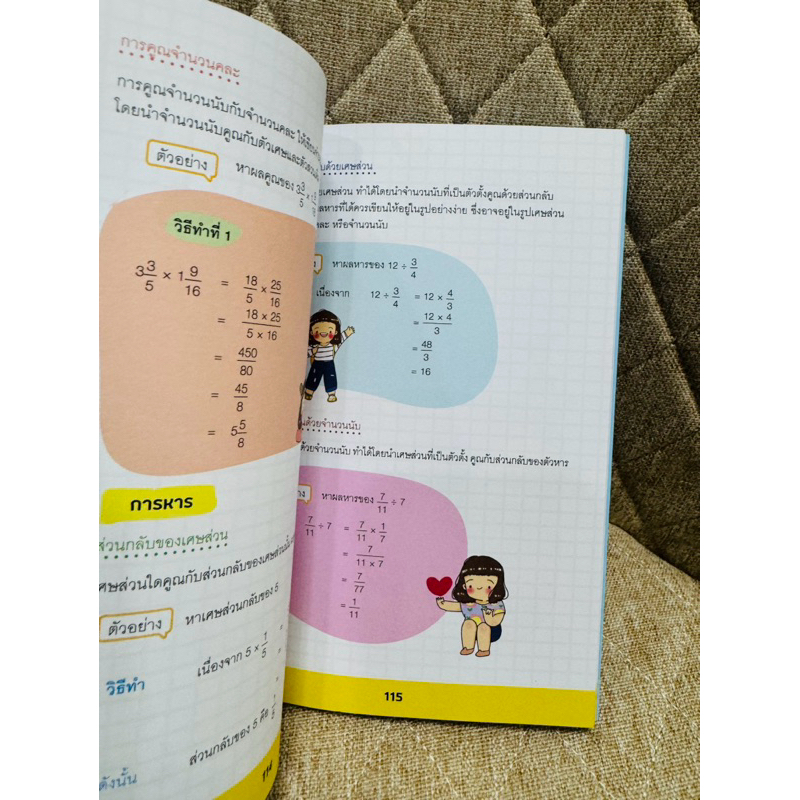 การคูณจำนวนคละ
การคูณจำนวนนับกับจำนวนคละ ให้เขียน
โดยนำจำนวนนับคูณกับตัวเศษและตัวส่วน
ตัวอย่าง หาผลคูณของ 3 3/5 ×
วิธีทำที่ 1
3 3/5 × 1 9/16 = 18/5 × 25/16
= 18 × 25 / 5 × 16
= 450/80
= 45/8
= 5 5/8
การหาร
ส่วนกลับของเศษส่วน
เศษส่วนใดคูณกับส่วนกลับของเศษส่วน
ตัวอย่าง หาเศษส่วนกลับของ 5
วิธีทำ เนื่องจาก 5 × 1/5 =
=
=
ส่วนกลับของ 5 คือ 1/5
ดังนั้น
114
ด้วยเศษส่วน
เศษส่วน ทำได้โดยนำจำนวนนับที่เป็นตัวตั้งคูณด้วยส่วนกลับ
ผลหารที่ได้ควรเขียนให้อยู่ในรูปอย่างง่าย ซึ่งอาจอยู่ในรูปเศษส่วน
คละ หรือจำนวนนับ
หาผลหารของ 12 ÷ 3/4
เนื่องจาก 12 ÷ 3/4 = 12 × 4/3
= 12 × 4 / 3
= 48/3
= 16
ด้วยจำนวนนับ
ด้วยจำนวนนับ ทำได้โดยนำเศษส่วนที่เป็นตัวตั้ง คูณกับส่วนกลับของตัวหาร
หาผลหารของ 7/11 ÷ 7
7/11 ÷ 7 = 7/11 × 1/7
= 7 / 11 × 7
= 7/77
= 1/11
115